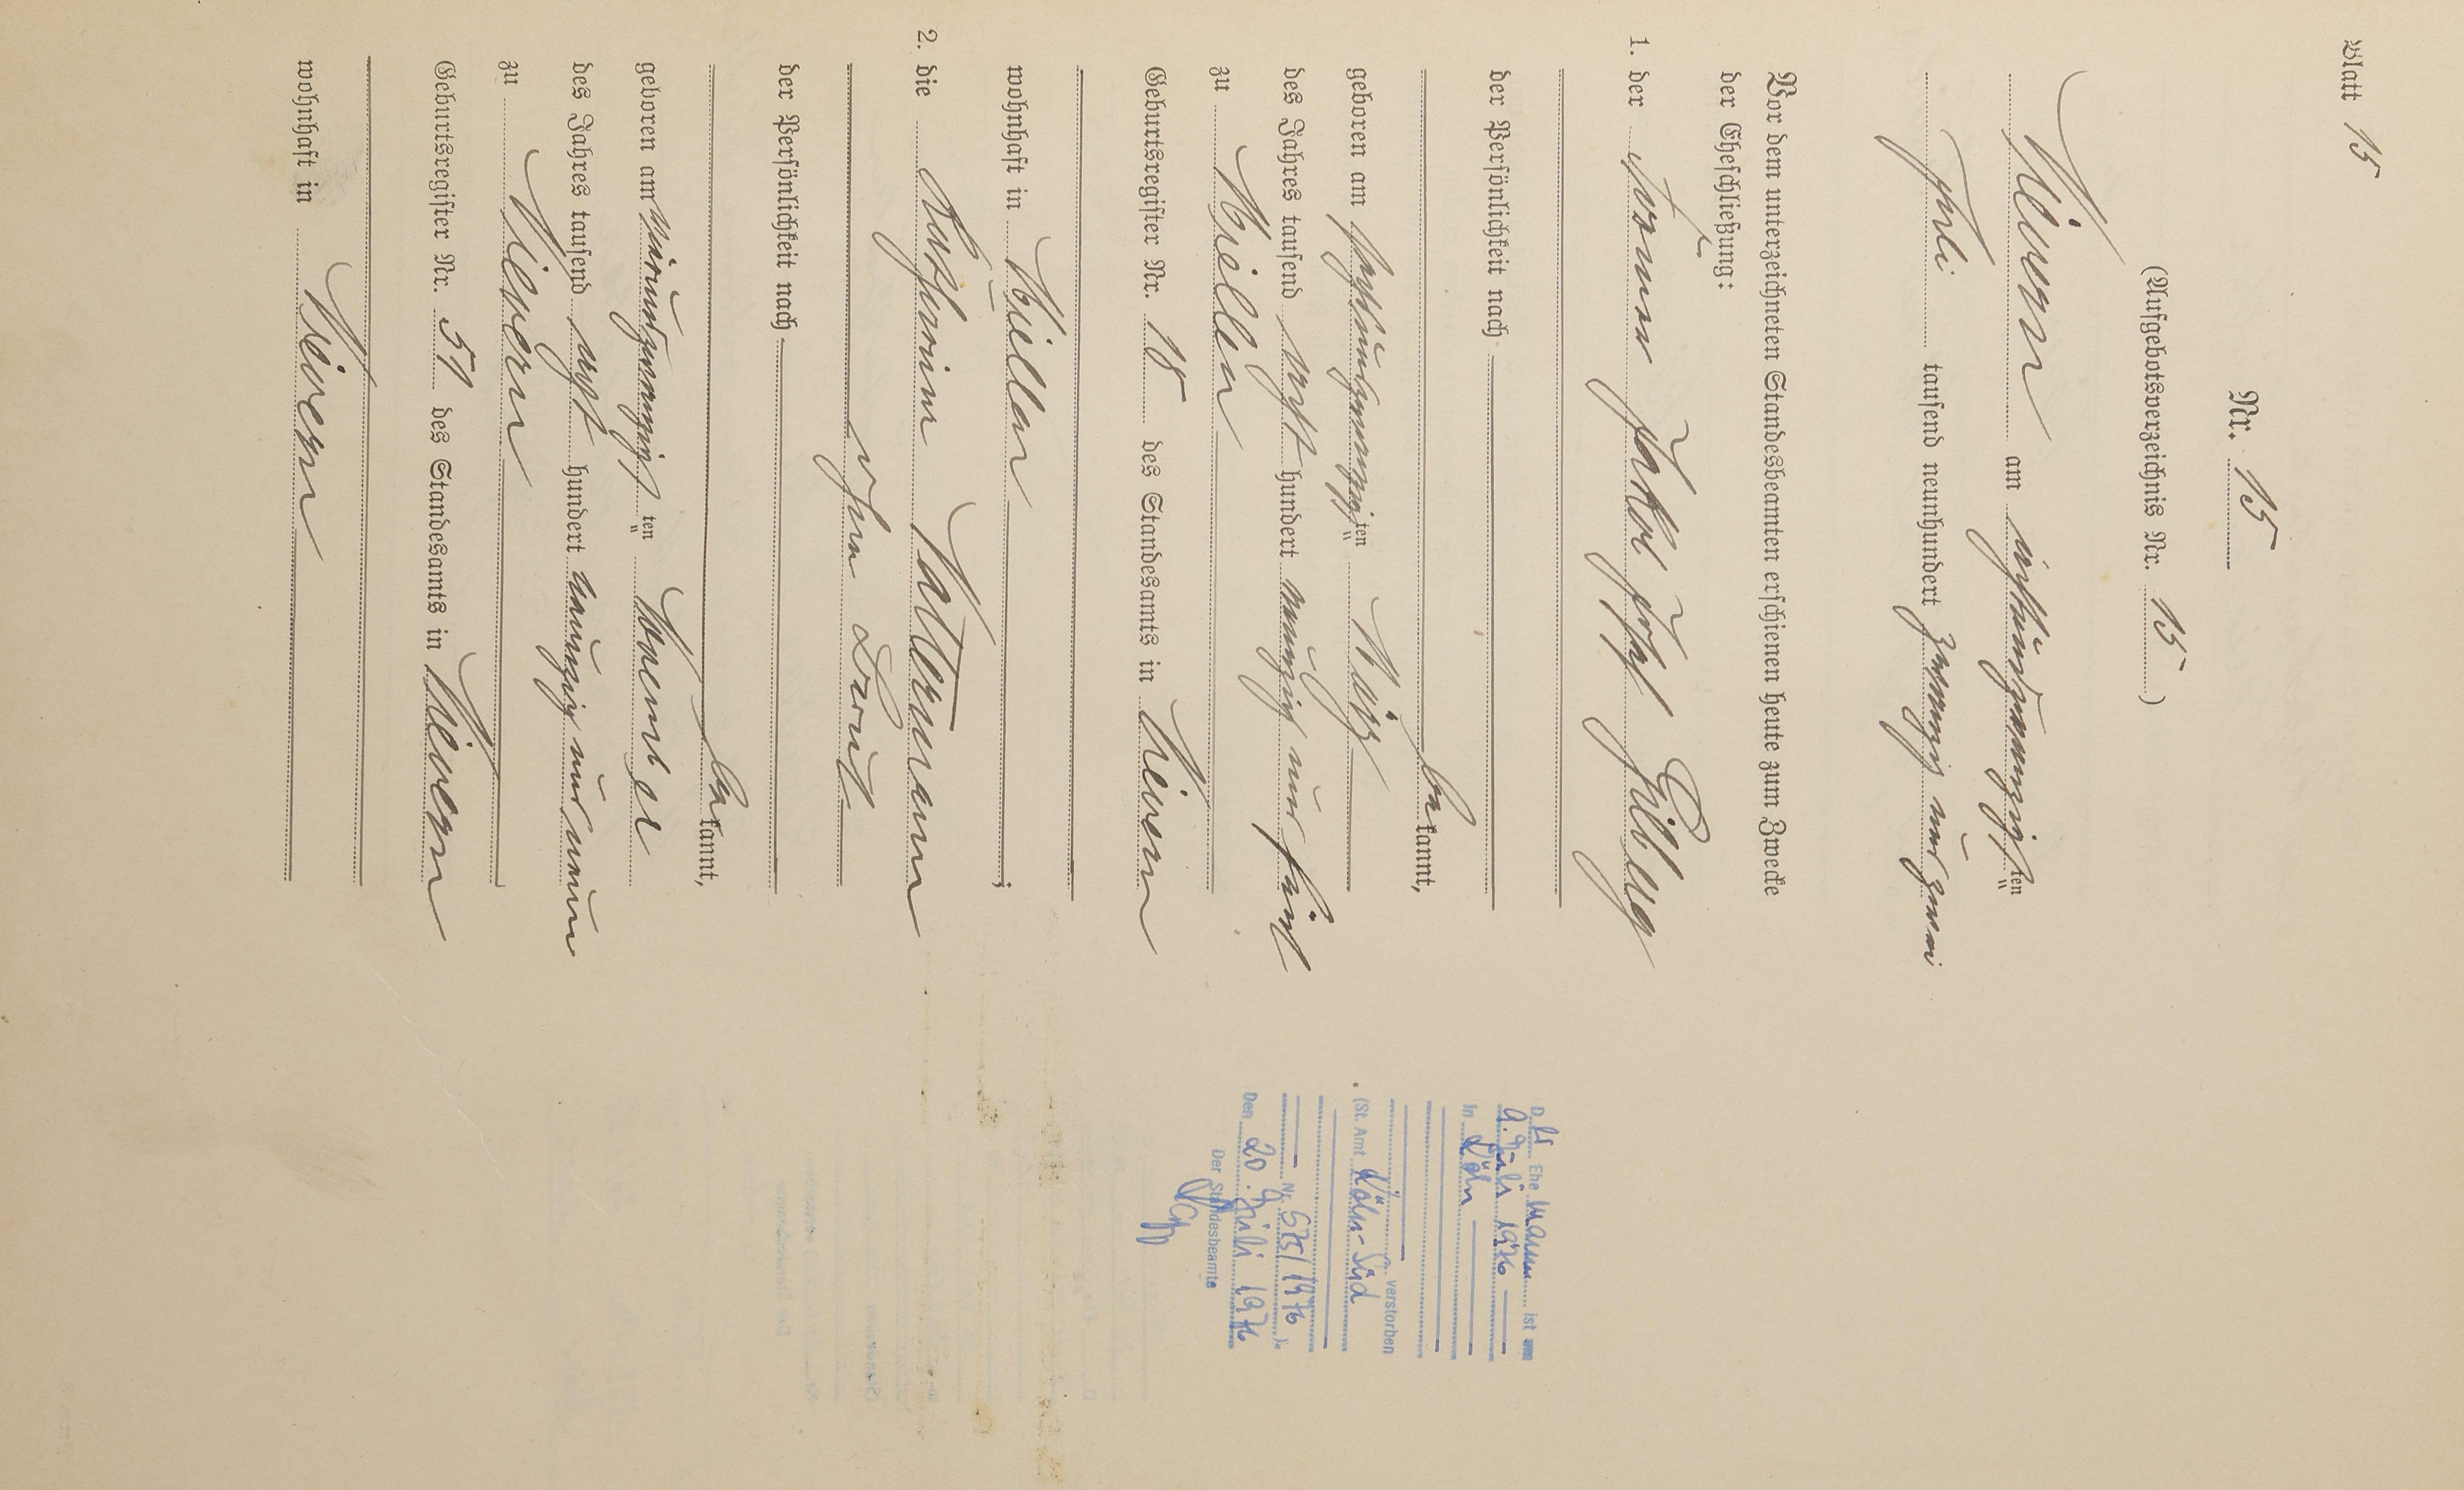 Blatt 15
Nr. 15
(Aufgebotsverzeichnis Nr. 15)
Nievern am achtundzwanzigsten ten
Juli tausend neunhundert zwanzig und zwei
Vor dem unterzeichneten Standesbeamten erschienen heute zum Zwecke
der Eheschließung:
1. der Former Jakob Josef
der Persönlichkeit nach
bekannt,
geboren am ten März
des Jahres tausend acht hundert neunzig und fünf
zu Miellen
Geburtsregister Nr. 18 des Standesamts in Nievern
wohnhaft in Miellen ;
2. die Katharina Nattermann
ohne Beruf
der Persönlichkeit nach
bekannt,
geboren am vierundzwanzigsten ten November
des Jahres tausend acht hundert neunzig und neun
zu Nievern
Geburtsregister Nr. 51 des Standesamts in Nievern
wohnhaft in Nievern
Der Ehemann ist am
9. Juli 1976
In Köln
verstorben
(St. Amt Köln-Süd
Nr. 575/1976 ).
Den 20. Juli 1976
Der Standesbeamte